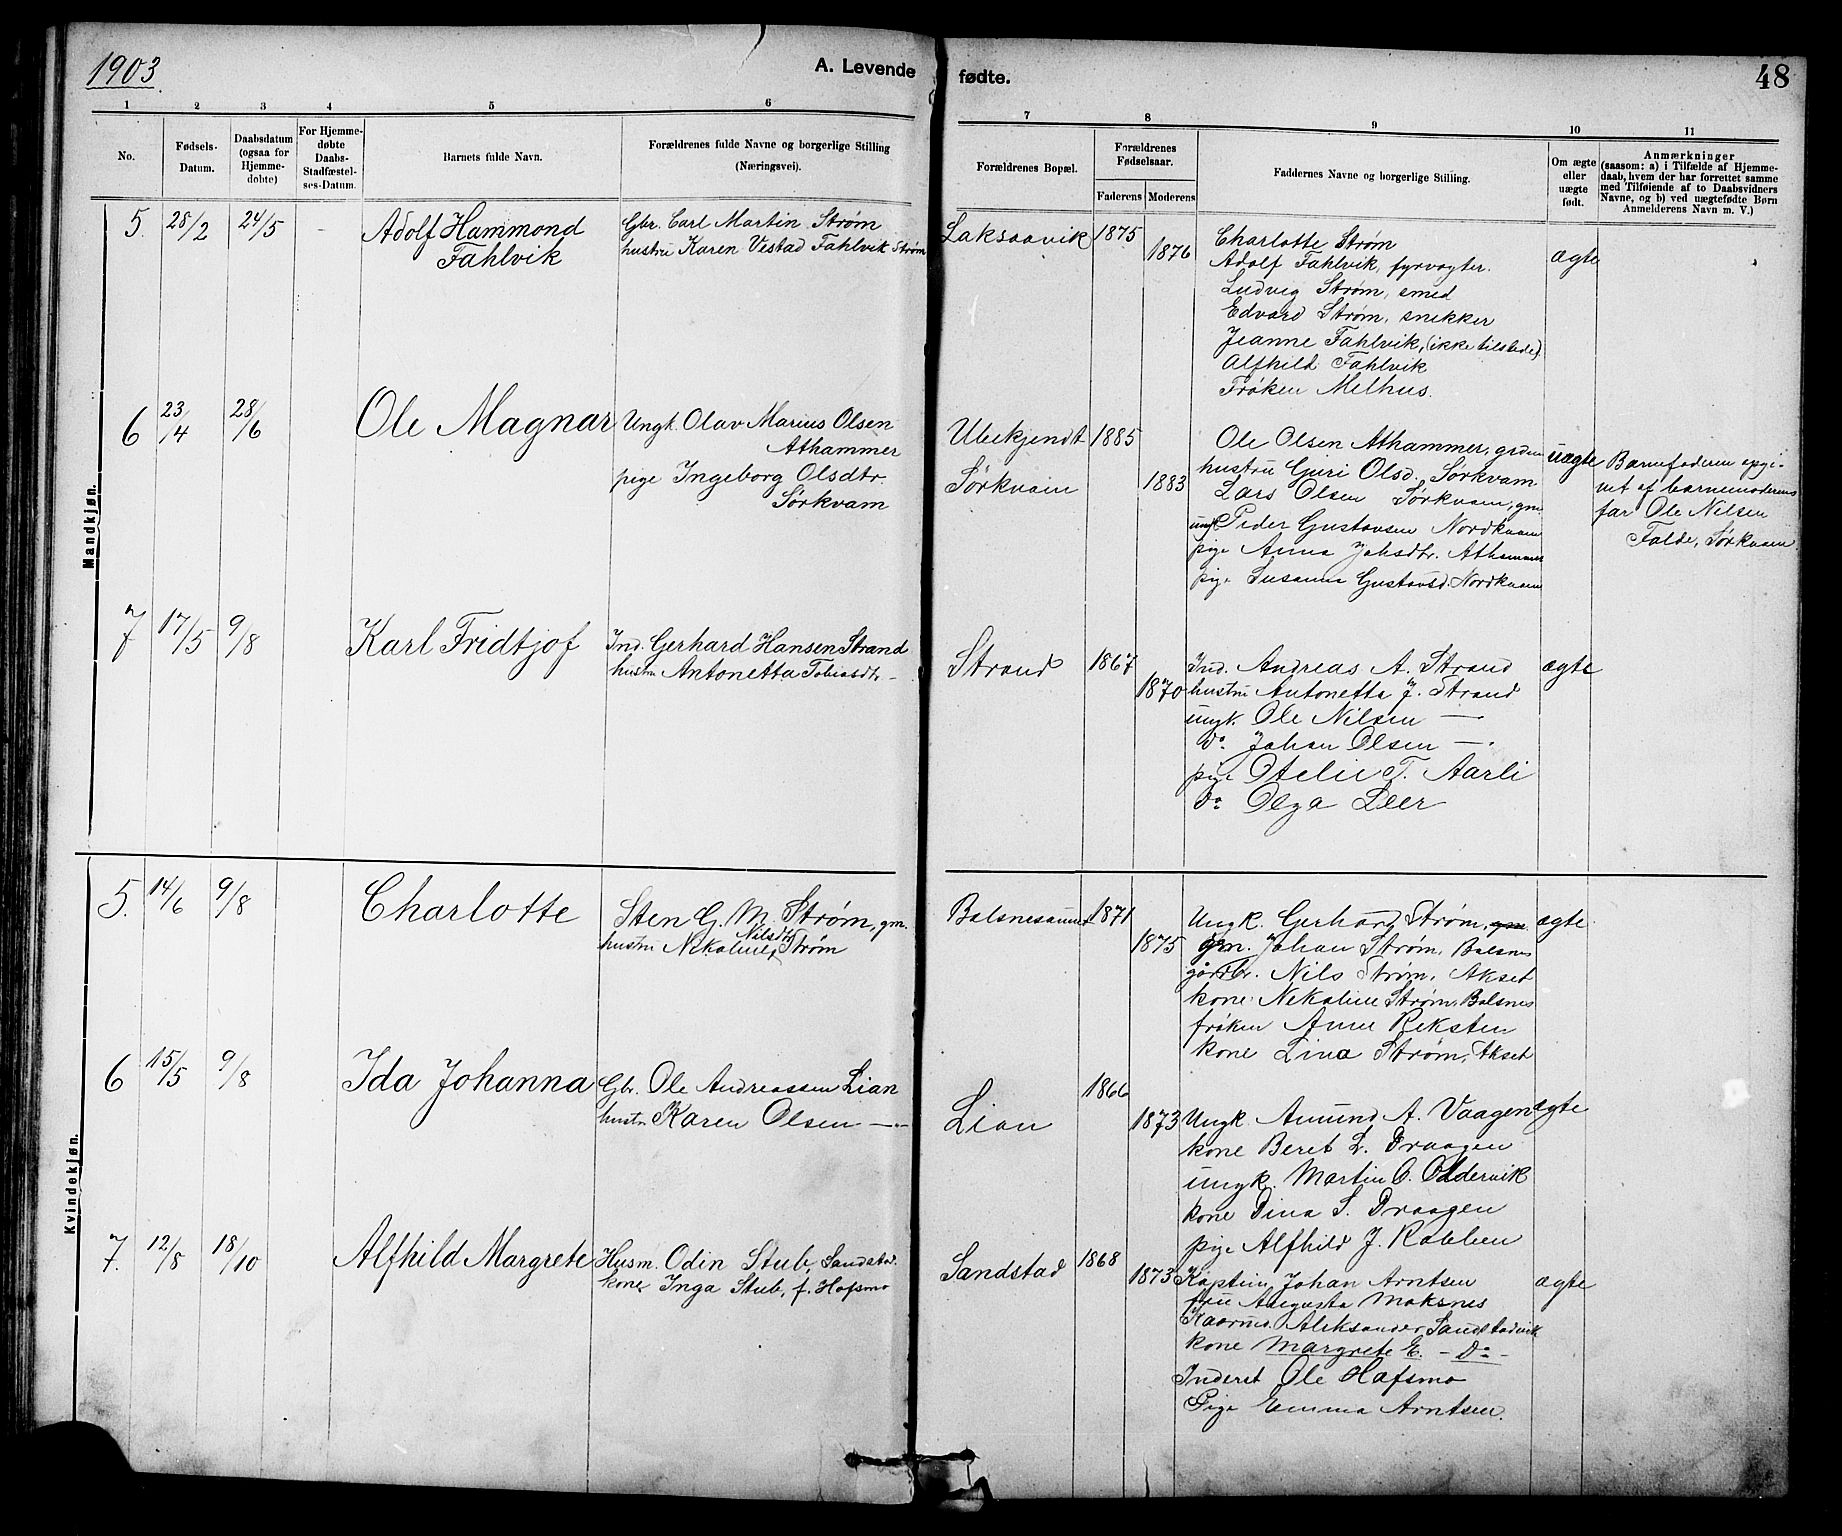 1903.
A. Levende
fødte.
48
1
2
3
4
5
6
7
8
9
10
11
No.
Fødsels-
Datum.
Daabsdatum
(ogsaa for
Hjemme-
døbte)
For Hjemme-
døbte
Daabs-
Stadfæstel-
ses-Datum.
Barnets fulde Navn.
Forældrenes fulde Navne og borgerlige Stilling
(Næringsvei).
Forældrenes Bopæl.
Forældrenes
Fødselsaar.
Faderens
Moderens
Faddernes Navne og borgerlige Stilling.
Om ægte
eller
uægte
født.
Anmærkninger
(saasom: a) i Tilfælde af Hjemme-
daab, hvem der har forrettet samme
med Tilføiende af to Daabsvidners
Navne, og b) ved uægtefødte Børn
Anmelderens Navn m. V.)
Mandkjøn.
5.
28/2
24/5
-
Adolf Hammond
Fahlvik
Gbr. Carl Martin Strøm
hustru Karen Vestad Fahlvik Strøm
Laksaavik
1875
1876
Charlotte Strøm
Adolf Fahlvik, fyrvogter.
Ludvig Strøm, smed
Edvard Strøm, snekker
Jeanne Fahlvik, (ikke tilstede)
Alfhild Fahlvik
Frøken Melhus.
ægte
6
23/4
28/6
Ole Magnar
Ungk. Olav Marius Olsen
Athammer
pige Ingeborg Olsdtr.
Sørkvam
Ubekjendt
Sørkvam
1885
1883
Ole Olsen Athammer, grdm
hustru Guri Olsd. Sørkvam
Lars Olsen Sørkvam, gm.
ungk Peder Gustavsen Nordkvam
pige Anna Johsdtr. Athammer
pige Susanna Gustavsd. Nordkvam
uægte
Barnefaderen opgi-
vet af barnemoderens
far Ole Nilsen
Falde, Sørkvam
7
17/5
9/8
Karl Fridtjof
Ind. Gerhard Hansen Strand
hustru Antonetta Tobiasdtr. -
Strand
1867
1870
Ind. Andreas A. Strand
hustru Antonetta J. Strand
ungk. Ole Nilsen —
do. Johan Olsen —
pige Otelie T. Aarli
do Olga Leer
ægte
Kvindekjøn.
5.
14/6
9/8
Charlotte
Sten G. M. Strøm, gm.
Nilsdtr
hustru Nekoline Strøm
Balsnesaunet
1871
1875
Ungk. Gerhard Strøm, gm.
gm. Johan Strøm, Balsnes
gårdbr. Nils Strøm, Akset
kone Nekoline Strøm, Balsnes
frøken Anne Reksten
kone Lina Strøm, Akset
ægte
6
15/5
9/8
Ida Johanna
Gbr. Ole Andreassen Lian
hustru Karen Olsen —
Lian
1866
1873
Ungk. Amund A. Vaagen
kone Beret L. Draagen
ungk. Martin O. Oldervik
kone Dina S. Draagen
pige Alfhild J. Kobben
ægte
7.
12/8
18/10
Alfhild Margrete
Husm. Odin Stub, Sandstad
kone Inga Stub, f. Hofsmo
Sandstad
1868
1873
Kaptein Johan Arntsen
fru Augusta Moksnes
Kaarmd. Aleksander Sandstadvik
kone Margrete E. - Do -
Inderst Ole Hafsmo
Pige Emma Arntsen.
ægte